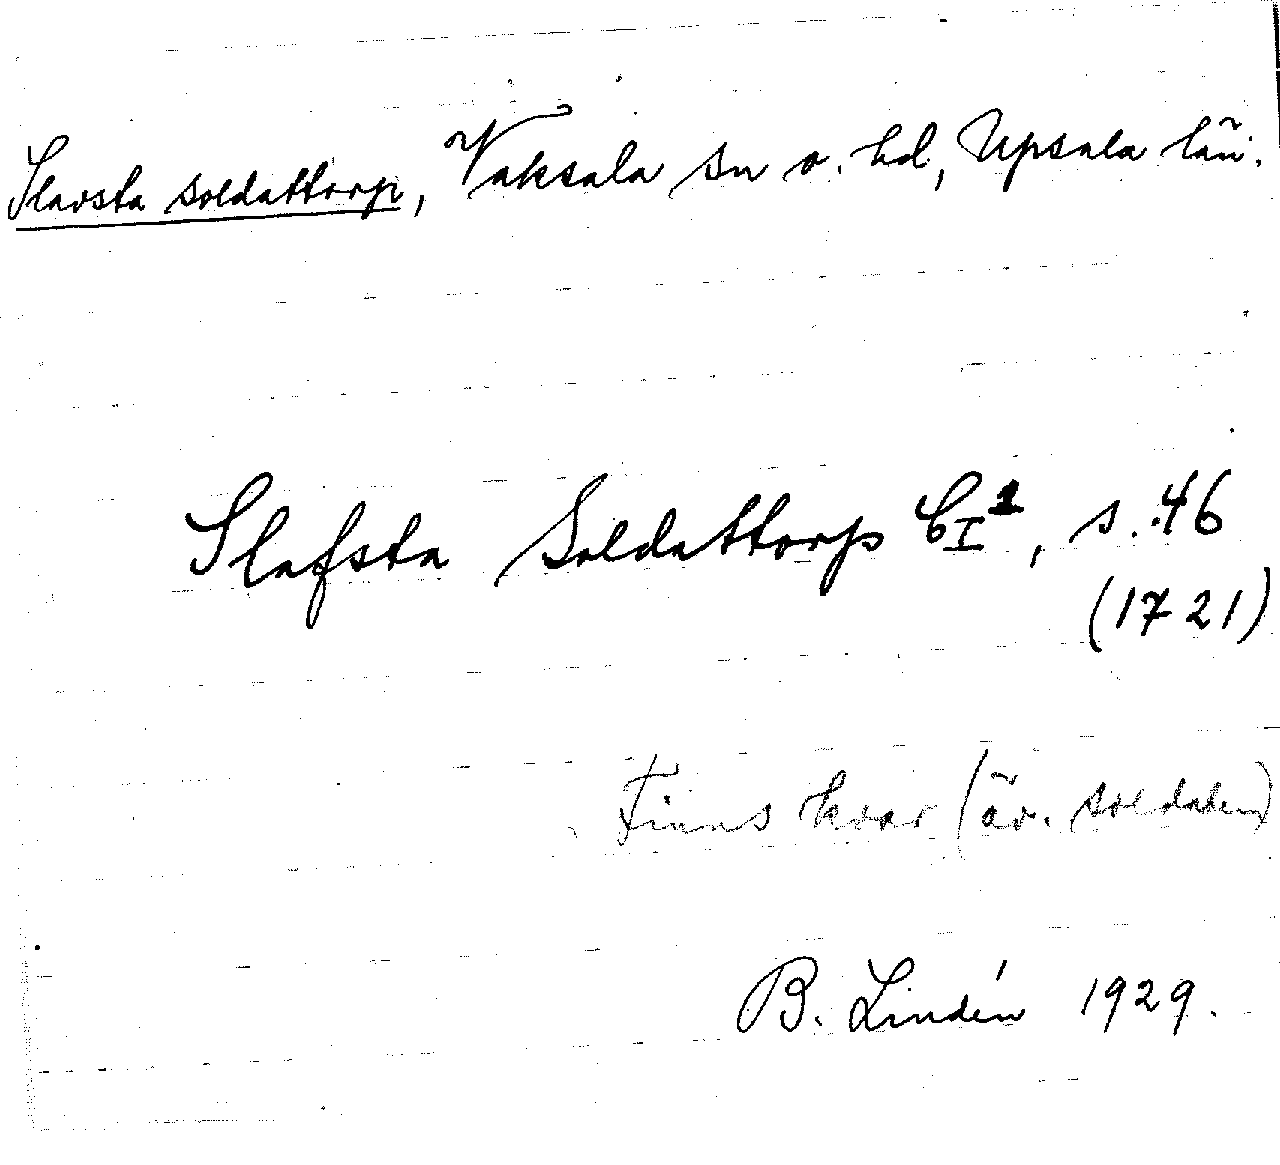 Slavsta soldattorp, Vaksala sn o. hd, Upsala län.
Slafsta Soldattorp CI¹, s. 46
(1721)
Finns kvar (äv. soldaten)
B. Lindén 1929.